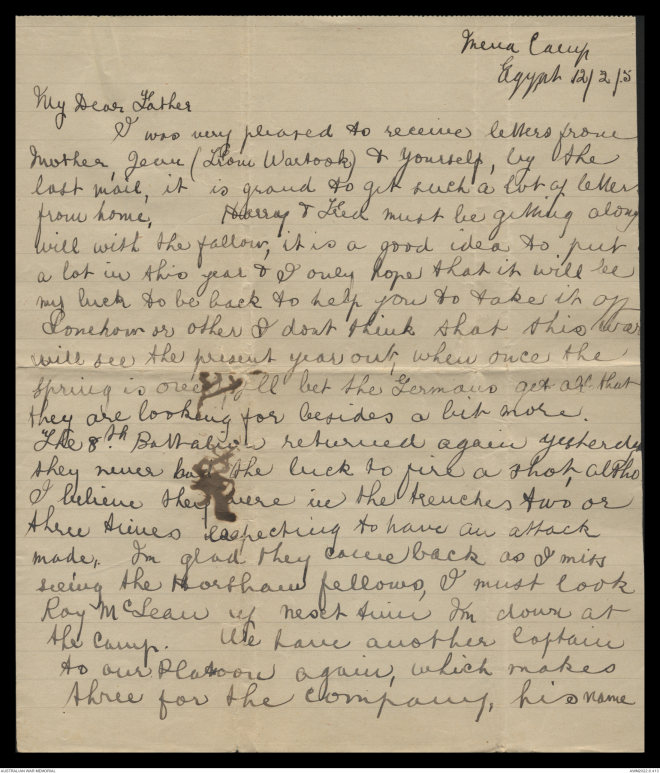 Mena Camp
Egypt 12/2/15
My Dear Father
I was very pleased to receive letters from
Mother, Jean (From Wartook) & yourself, by the
last mail, it is grand to get such a lot of letters
from home, Harry & Fred must be getting along
well with the fallow, it is a good idea to put
a lot in this year & I only hope that it will be
my luck to be back to help you to take it off
Somehow or other I dont think that this war
will see the present year out, when once the
spring is over I'll bet the Germans get all that
they are looking for besides a bit more.
The 8th Battalion returned again yesterday
they never had the luck to fire a shot, altho
I believe they were in the trenches two or
three times expecting to have an attack
made. I'm glad they came back as I miss
seeing the Horsham fellows, I must look
Roy McLean up next time I'm down at
the camp. We have another Captain
to our Platoon again, which makes
three for the company, his name
AUSTRALIAN WAR MEMORIAL